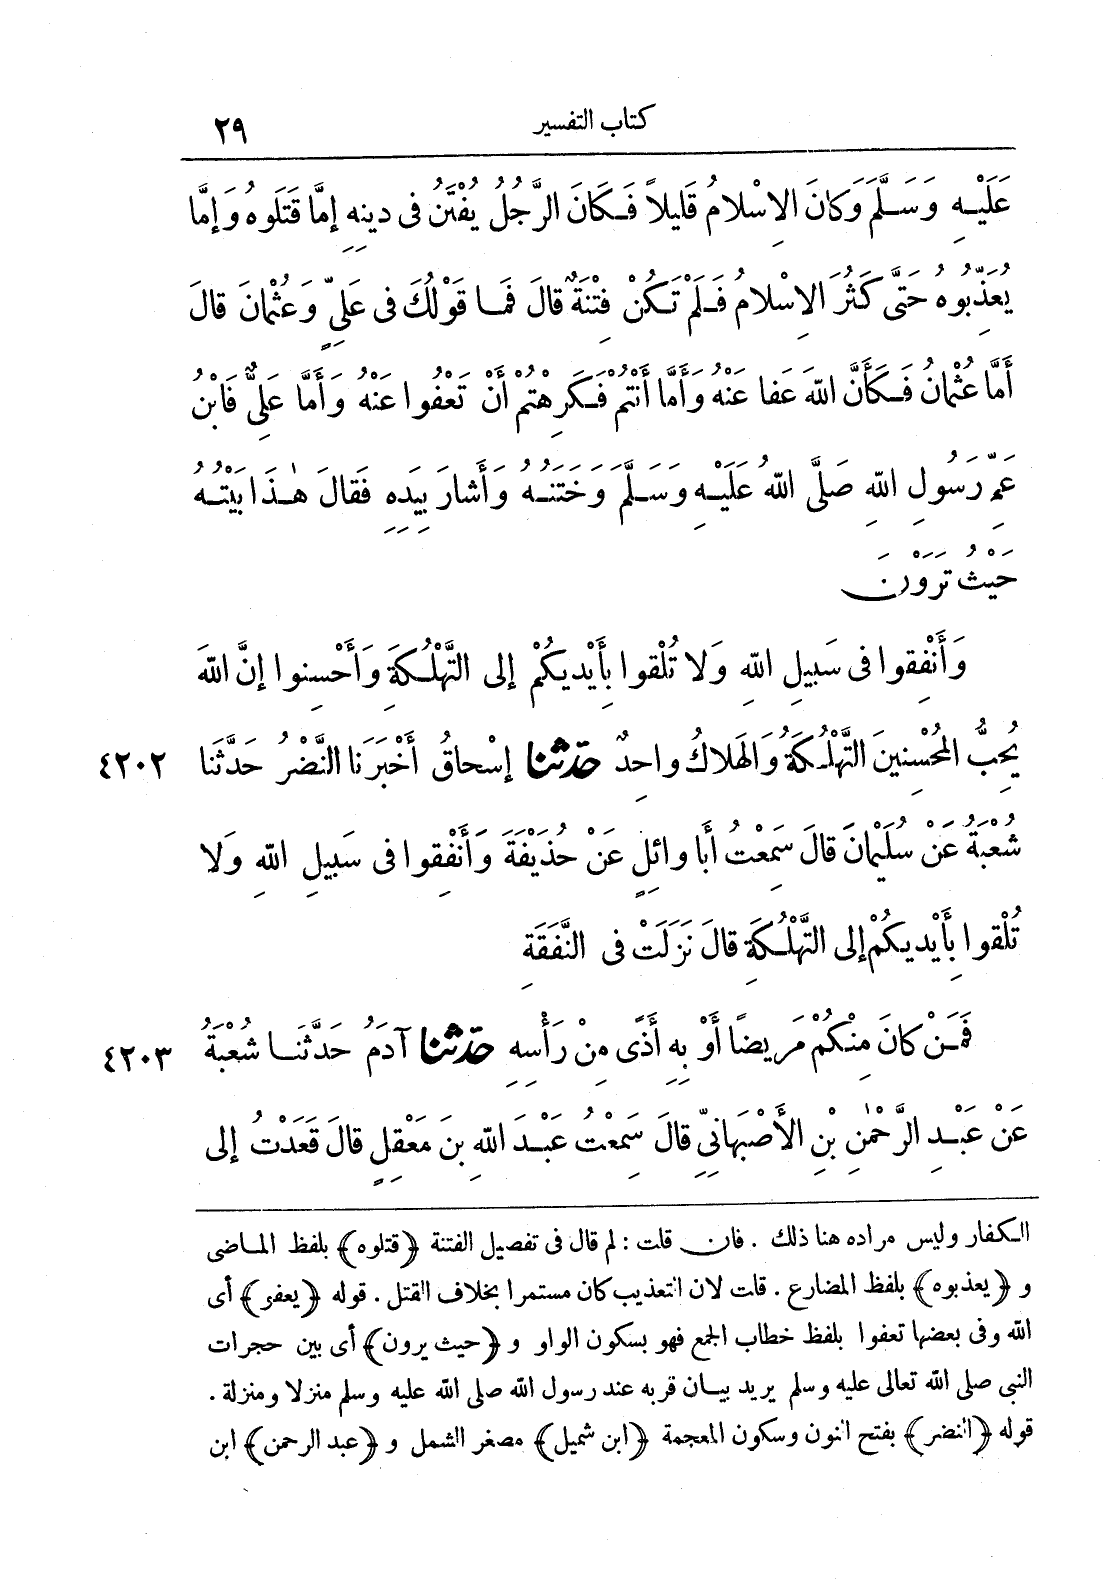 كتاب التفسير ٢٩
عَلَيْهِ وَسَلَّمَ وَكانَ الإِسْلامُ قَلِيلاً فَكَانَ الرَّجُلُ يُفْتَنُ فى دينِهِ إمَّا قَتَلُوهُ وَإمَّا
يُعَذِّبُوهُ حَتَّى كَثُرَ الإِسْلامُ فَلَمْ تَكُنْ فِتْنَةٌ قالَ فَمَا قَوْلُكَ فى عَلِيٍّ وَعُثْمانَ قالَ
أَمَّا عُثْمانُ فَكَأَنَّ اللهَ عَفا عَنْهُ وَأَمَّا أَنْتُمْ فَكَرِهْتُمْ أَنْ تَعْفُوا عَنْهُ وَأَمَّا عَلِيٌّ فَابْنُ
عَمِّ رَسُولِ اللهِ صَلَّى اللهُ عَلَيْهِ وَسَلَّمَ وَخَتَنُهُ وَأَشارَ بِيَدِهِ فَقالَ هٰذَا بَيْتُهُ
حَيْثُ تَرَوْنَ
وَأَنْفِقوا فى سَبيلِ اللهِ وَلا تُلْقوا بِأَيْديكُمْ إلى التَّهْلُكَةِ وَأَحْسِنوا إنَّ اللهَ
يُحِبُّ المُحْسِنينَ التَّهْلُكَةُ وَالهَلاكُ واحِدٌ حدّثنا إسْحاقُ أَخْبَرَنا النَّضْرُ حَدَّثَنا ٤٢٠٢
شُعْبَةُ عَنْ سُلَيْمانَ قالَ سَمِعْتُ أَبا وائِلٍ عَنْ حُذَيْفَةَ وَأَنْفِقوا فى سَبيلِ اللهِ وَلا
تُلْقوا بِأَيْديكُمْ إلى التَّهْلُكَةِ قالَ نَزَلَتْ فى النَّفَقَةِ
فَمَنْ كانَ مِنْكُمْ مَريضًا أَوْ بِهِ أَذًى مِنْ رَأْسِهِ حدّثنا آدَمُ حَدَّثَنا شُعْبَةُ ٤٢٠٣
عَنْ عَبْدِ الرَّحْمٰنِ بْنِ الأَصْبَهانِيِّ قالَ سَمِعْتُ عَبْدَ اللهِ بنَ مَعْقِلٍ قالَ قَعَدْتُ إلى
الكفار وليس مراده هنا ذلك . فان قلت : لم قال فى تفصيل الفتنة ﴿قتلوه﴾ بلفظ الماضى
و ﴿يعذبوه﴾ بلفظ المضارع . قلت لان التعذيب كان مستمرا بخلاف القتل . قوله ﴿يعفو﴾ أى
الله وفى بعضها تعفوا بلفظ خطاب الجمع فهو بسكون الواو و ﴿حيث يرون﴾ أى بين حجرات
النبى صلى الله تعالى عليه وسلم يريد بيان قربه عند رسول الله صلى الله عليه وسلم منزلا ومنزلة .
قوله ﴿النضر﴾ بفتح النون وسكون المعجمة ﴿ابن شميل﴾ مصغر الشمل و ﴿عبد الرحمن﴾ ابن